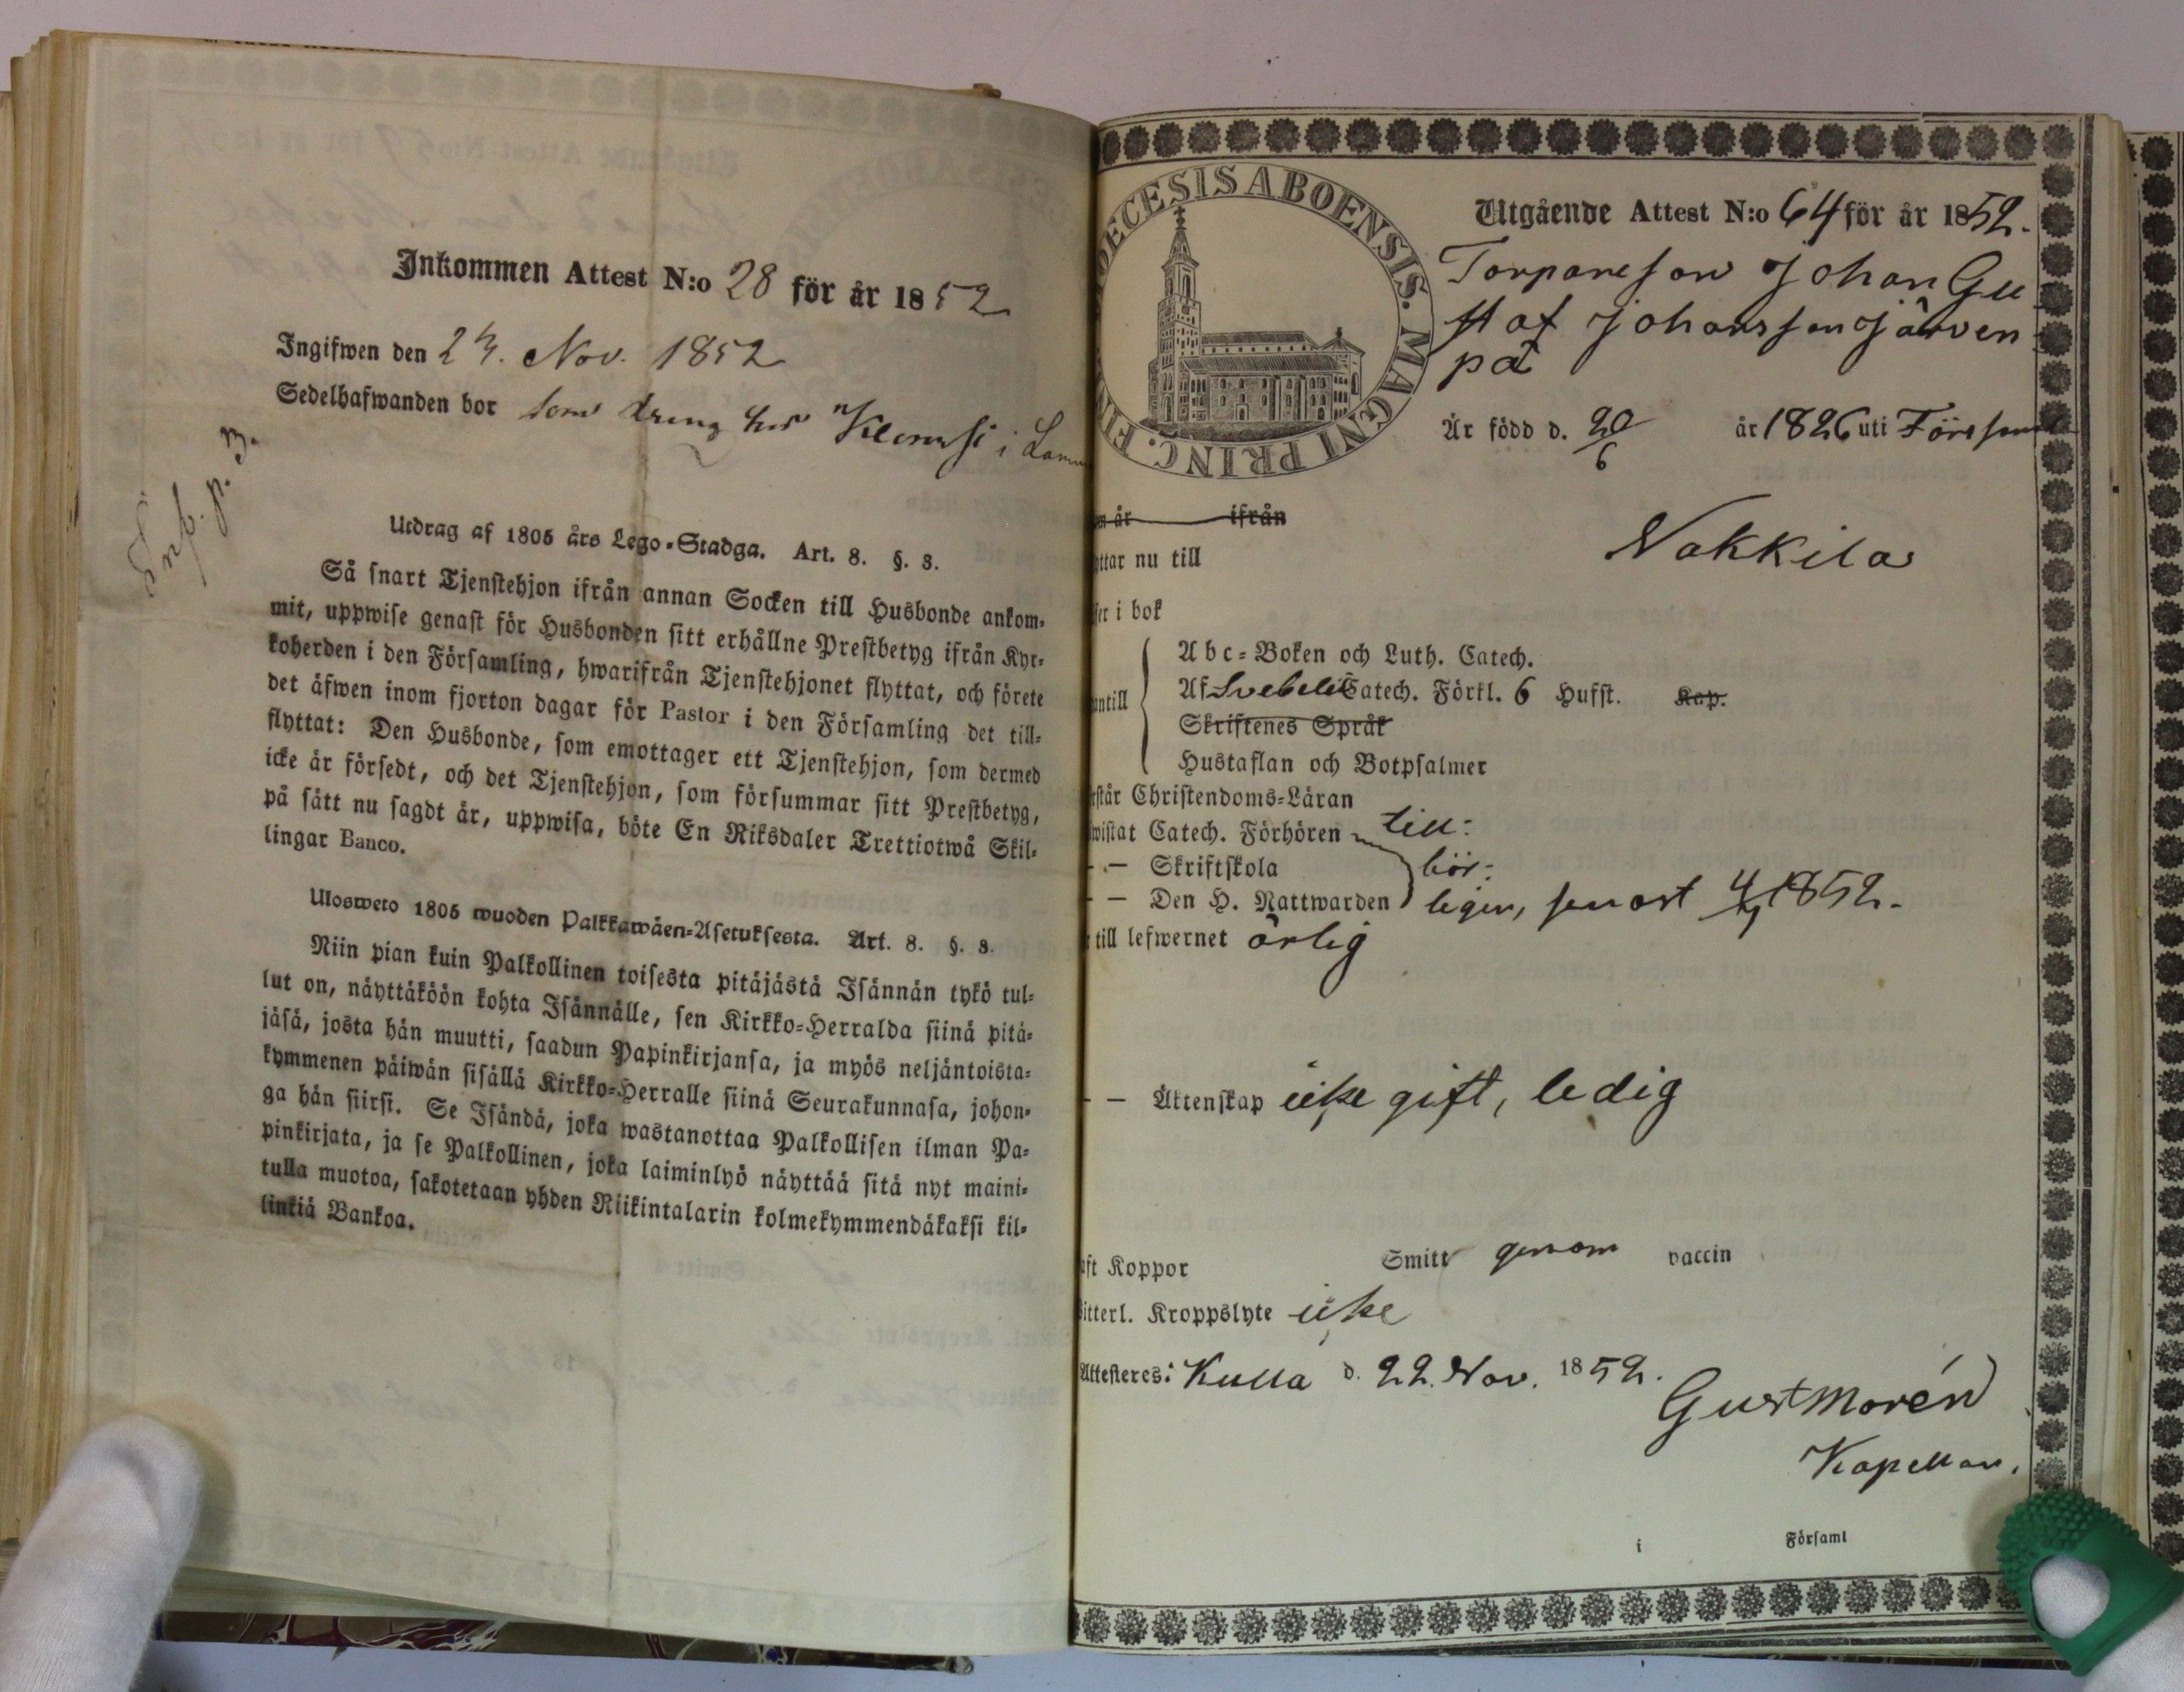 Inkommen Attest N:o 28 för år 1852
Ingifwen den 24. Nov. 1852
Sedelhafwanden bor som dreng hos Klemsi i
Inf. p. 3.
Utdrag af 1805 års Lego-Stadga. Art. 8. §. 8.
Så snart Tjenstehjon ifrån annan Socken till Husbonde ankom-
mit, uppwise genast för Husbonden sitt erhållne Prestbetyg ifrån Kyr-
koherden i den Församling, hwarifrån Tjenstehjonet flyttat, och förete
det äfwen inom fjorton dagar för Pastor i den Församling det till-
flyttat: Den Husbonde, som emottager ett Tjenstehjon, som dermed
icke är försedt, och det Tjenstehjon, som försummar sitt Prestbetyg,
på sätt nu sagdt är, uppwisa, böte En Riksdaler Trettiotwå Skil-
lingar Banco.
Ulosweto 1805 wuoden Palkkawäen-Asetuksesta. Art. 8. §. 8.
Niin pian kuin Palkollinen toisesta pitäjästä Isännän tykö tul-
lut on, näyttäköön kohta Isännälle, sen Kirkko-Herralda siinä pitä-
jäsä, josta hän muutti, saadun Papinkirjansa, ja myös neljäntoista-
kymmenen päiwän sisällä Kirkko-Herralle siinä Seurakunnasa, johon-
ga hän siirsi. Se Isändä, joka wastanottaa Palkollisen ilman Pa-
pinkirjata, ja se Palkollinen, joka laiminlyö näyttää sitä nyt maini-
tulla muotoa, sakotetaan yhden Riikintalarin kolmekymmendäkaksi kil-
linkiä Bankoa.
DIOECESIS ABOENSIS. MAGNI PRINC. FIN
Utgående Attest N:o 64 för år 1852.
Torpareson Johan Gu
staf Johansson Järven
pä
Är född d. 20/6 år 1826 uti Förs
m år ifrån
yttar nu till Nakkila
ser i bok
Abc-Boken och Luth. Catech.
antill Af Svebelii Catech. Förkl. 6 Hufst. Kap.
Skriftenes Språk
Hustaflan och Botpsalmer
rstår Christendoms-Läran
wistat Catech. Förhören till-
— Skriftskola bör-
— Den H. Nattwarden ligen, senast 1852.
till lefwernet ärlig
— Äktenskap icke gift, ledig
aft Koppor Smitt genom vaccin
itterl. Kroppslyte icke
Attesteres: Kulla d. 22. Nov. 1852.
Gust Morén
Kapellan.
i Församl